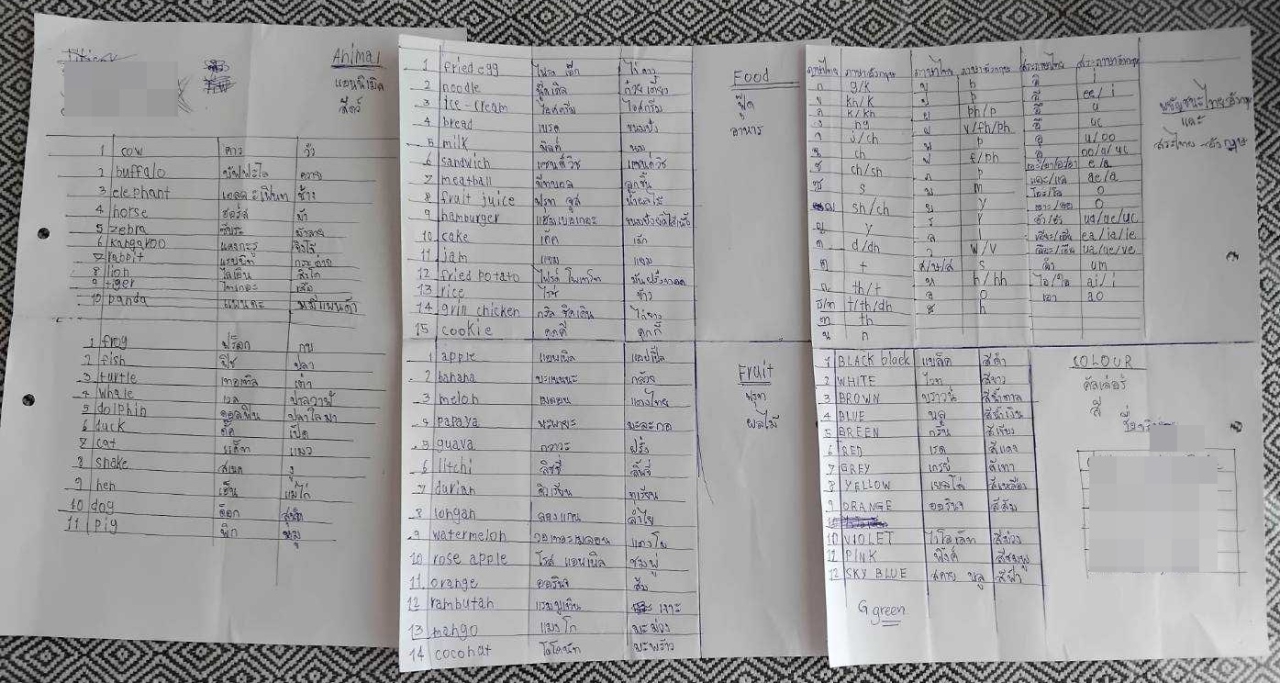 Animal
แอนนิเมิล
สัตว์
1 cow คาว วัว
2 buffalo บัฟฟะโล ควาย
3 elephant เอลละเฟินท ช้าง
4 horse ฮอร์ส ม้า
5 zebra ซีบระ ม้าลาย
6 kangakoo แคงกะรู จิงโจ้
7 rabbit แรบบิท กระต่าย
8 lion ไลเอิน สิงโต
9 tiger ไทเกอะ เสือ
10 panda แพนดะ หมีแพนด้า
1 frog ฟร็อก กบ
2 fish ฟิช ปลา
3 turtle เทอเทิล เต่า
4 whale เวล ปลาวาฬ
5 dolphin ดอลฟิน ปลาโลมา
6 duck ดัค เป็ด
7 cat แค็ท แมว
8 snake สเนค งู
9 hen เฮ็น แม่ไก่
10 dog ด็อก สุนัข
11 pig พิก หมู
Food
ฟู้ด
อาหาร
1 fried egg ไฟรด์ เอ็ก ไข่ดาว
2 noodle นูดเดิล ก๋วยเตี๋ยว
3 ice-cream ไอศครีม ไอศกรีม
4 bread เบรด ขนมปัง
5 milk มิลค์ นม
6 sandwich แซนด์วิช แซนด์วิช
7 meatball มีทบอล ลูกชิ้น
8 fruit juice ฟรุท จูส น้ำผลไม้
9 hamburger แฮมเบอเกอะ
10 cake เค้ค เค้ก
11 jam แยม แยม
12 fried potato ไฟรด์ โพเทโท มันฝรั่งทอด
13 rice ไรซ์ ข้าว
14 grill chicken กริล ชิคเกิน ไก่ย่าง
15 cookie คุกคี้ คุกกี้
Fruit
ฟรุท
ผลไม้
1 apple แอพเพิล แอปเปิ้ล
2 banana บะแนนนะ กล้วย
3 melon เมลอน แตงไทย
4 papaya พะพายะ มะละกอ
5 guava กวาวะ ฝรั่ง
6 litchi ลิชชี่ ลิ้นจี่
7 durian ดิวเรียน ทุเรียน
8 longan ลองแกน ลำไย
9 watermelon วอเทอะเมลอน แตงโม
10 rose apple โรส แอพเพิล ชมพู่
11 orange ออรินจ ส้ม
12 rambutan แรมบูเทิน เงาะ
13 mango แมงโก มะม่วง
14 coconat โคโคนัท มะพร้าว
พยัญชนะไทย-อังกฤษ
และ
สระไทย-อังกฤษ
ภาษาไทย ภาษาอังกฤษ ภาษาไทย ภาษาอังกฤษ สระภาษาไทย สระภาษาอังกฤษ
ก g/k บ b อิ i
ข kh/k ป p อี ee/i
ค k/kh ผ ph/p อึ u
ง ng ฝ v/fh/ph อื ue
จ j/ch พ p อุ u/oo
ฉ ch ฟ f/ph อู oo/u/uc
ช ch/sh ภ p e/a
ซ s ม m ae/a
sh/ch ย y o
ญ y ร r o
ด d/dh ล l ua/ue/uc
ต t ว w/v ea/ia/ie
th/t s ua/ue/ve
t/th/dh ห h/hh um
ท th อ o ไอ/ใอ ai/i
น n ฮ h เอา ao
COLOUR
คัลเล่อร์
สี
1 BLACK black แบล็ค สีดำ
2 WHITE ไวท สีขาว
3 BROWN บราวน์ สีน้ำตาล
4 BLUE บลู สีน้ำเงิน
5 BREEN กรีน สีเขียว
6 RED เรด สีแดง
7 GREY เกรย์ สีเทา
8 YELLOW เยลโล่ สีเหลือง
9 ORANGE ออรินจ สีส้ม
10 VIOLET ไวโอเล็ท สีม่วง
11 PINK พิงค์ สีชมพู
12 SKY BLUE สคาย บลู สีฟ้า
G green